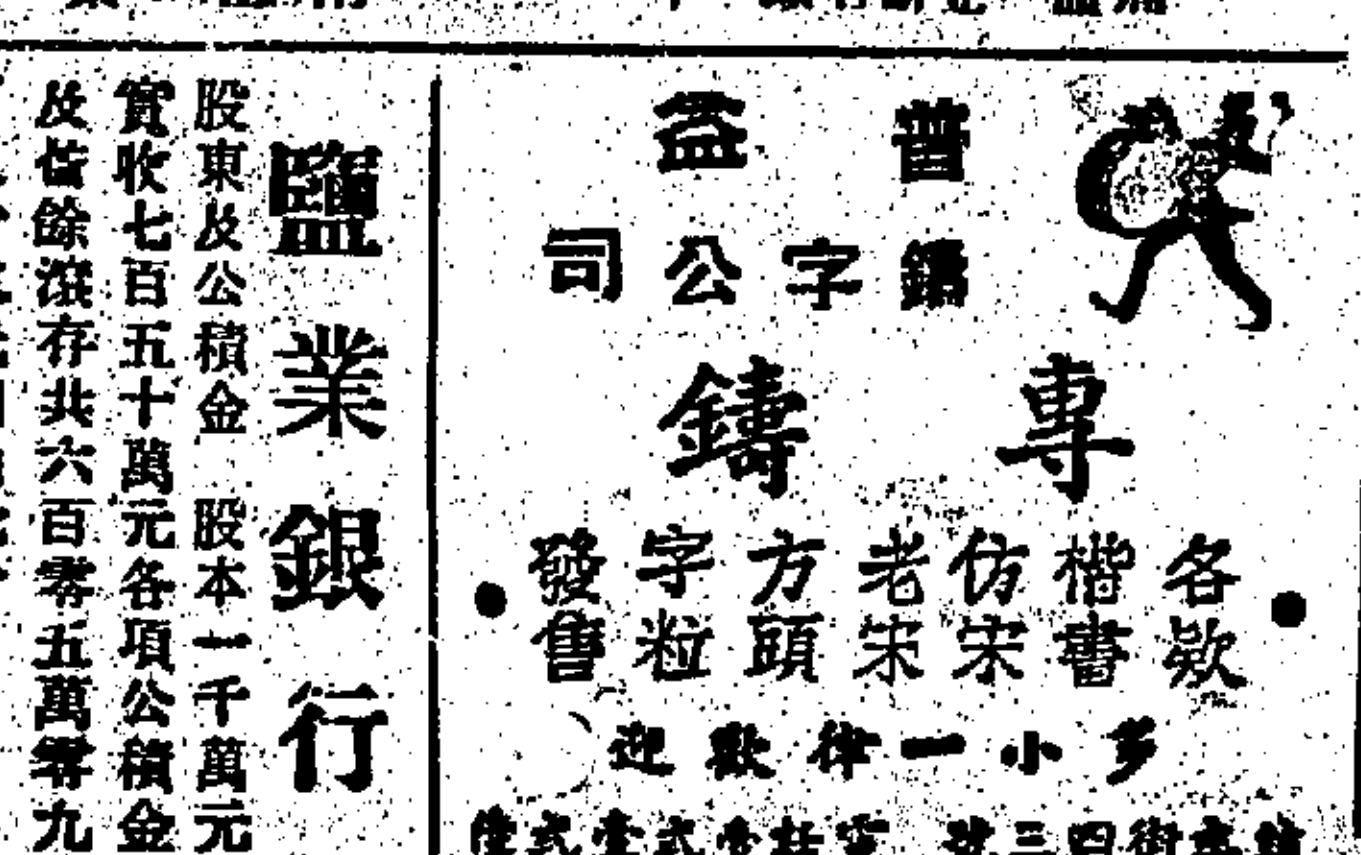 普益
鑄字公司
專鑄
各欵
楷書
仿宋
老宋
方頭
字粒
發售
多小一律歡迎
三四街
鹽業銀行
股東及公積金 股本一千萬元
實收七百五十萬元各項公積金
及盈餘滾存共六百零五萬零九